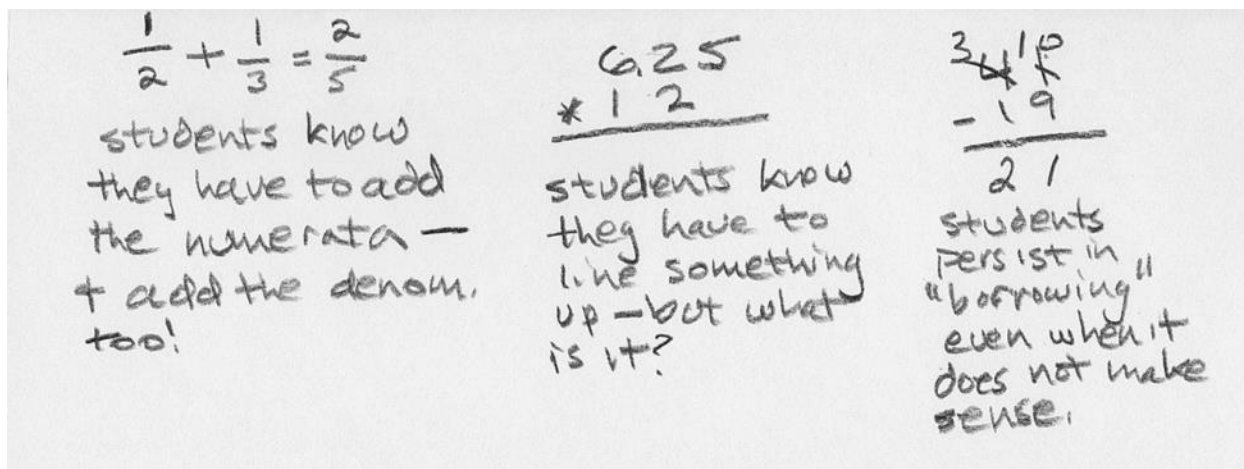 1/2 + 1/3 = 2/5
students know
they have to add
the numerata —
+ add the denom.
too!
6.25
* 1 2
students know
they have to
line something
up — but what
is it?
3 10
- 1 9
2 1
students
persist in
"borrowing"
even when it
does not make
sense.